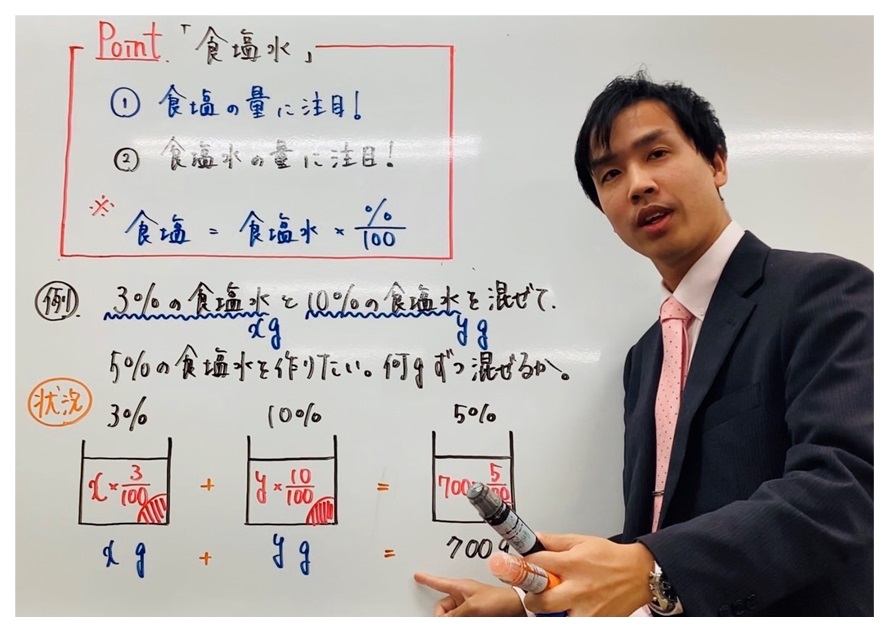 Point「食塩水」
① 食塩の量に注目！
② 食塩水の量に注目！
※ 食塩 = 食塩水 × %/100
例. 3%の食塩水と10%の食塩水を混ぜて.
xg yg
5%の食塩水を作りたい。何gずつ混ぜるか。
状況 3% 10% 5%
x × 3/100 + y × 10/100 = 700 5
x g + y g = 700